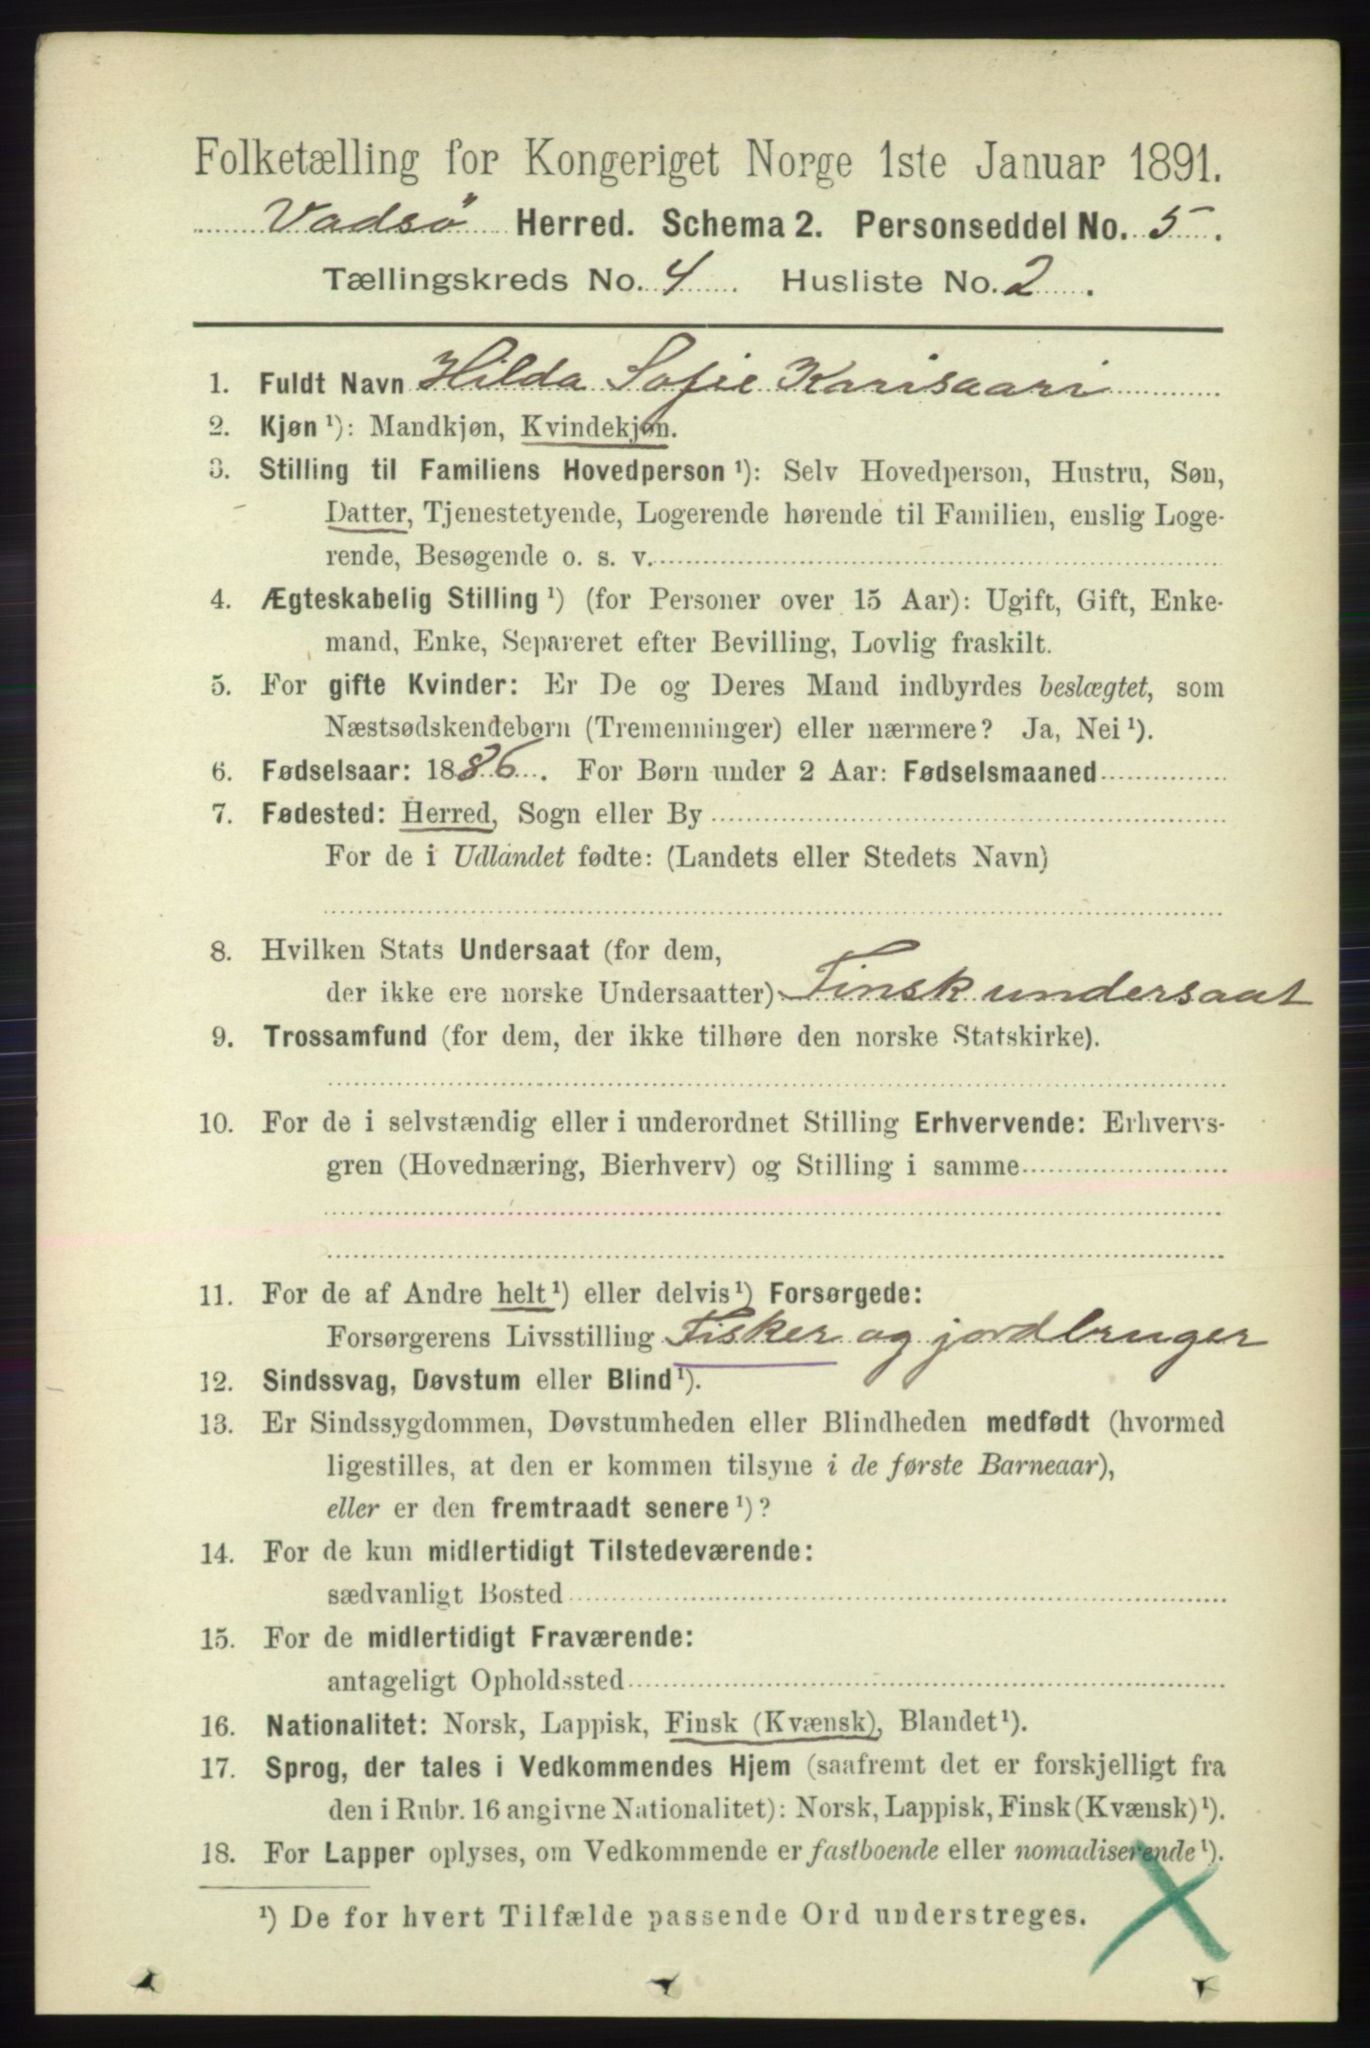 Folketælling for Kongeriget Norge 1ste Januar 1891.
Vadsö Herred. Schema 2. Personseddel No. 5.
Tællingskreds No. 4. Husliste No. 2.
1. Fuldt Navn Hilda Sofie Karisaari
2. Kjøn ¹): Mandkjøn, Kvindekjøn.
3. Stilling til Familiens Hovedperson ¹): Selv Hovedperson, Hustru, Søn,
Datter, Tjenestetyende, Logerende hørende til Familien, enslig Loge-
rende, Besøgende o. s. v.
4. Ægteskabelig Stilling ¹) (for Personer over 15 Aar): Ugift, Gift, Enke-
mand, Enke, Separeret efter Bevilling, Lovlig fraskilt.
5. For gifte Kvinder: Er De og Deres Mand indbyrdes beslægtet, som
Næstsødskendebørn (Tremenninger) eller nærmere? Ja, Nei ¹).
6. Fødselsaar: 1886. For Børn under 2 Aar: Fødselsmaaned
7. Fødested: Herred, Sogn eller By
For de i Udlandet fødte: (Landets eller Stedets Navn)
8. Hvilken Stats Undersaat (for dem,
der ikke ere norske Undersaatter) Finsk undersaat
9. Trossamfund (for dem, der ikke tilhøre den norske Statskirke).
10. For de i selvstændig eller i underordnet Stilling Erhvervende: Erhvervs-
gren (Hovednæring, Bierhverv) og Stilling i samme
11. For de af Andre helt ¹) eller delvis ¹) Forsørgede:
Forsørgerens Livsstilling Fisker og jordbruger
12. Sindssvag, Døvstum eller Blind ¹).
13. Er Sindssygdommen, Døvstumheden eller Blindheden medfødt (hvormed
ligestilles, at den er kommen tilsyne i de første Barneaar),
eller er den fremtraadt senere ¹)?
14. For de kun midlertidigt Tilstedeværende:
sædvanligt Bosted
15. For de midlertidigt Fraværende:
antageligt Opholdssted
16. Nationalitet: Norsk, Lappisk, Finsk (Kvænsk), Blandet ¹).
17. Sprog, der tales i Vedkommendes Hjem (saafremt det er forskjelligt fra
den i Rubr. 16 angivne Nationalitet): Norsk, Lappisk, Finsk (Kvænsk) ¹).
18. For Lapper oplyses, om Vedkommende er fastboende eller nomadiserende ¹).
¹) De for hvert Tilfælde passende Ord understreges.